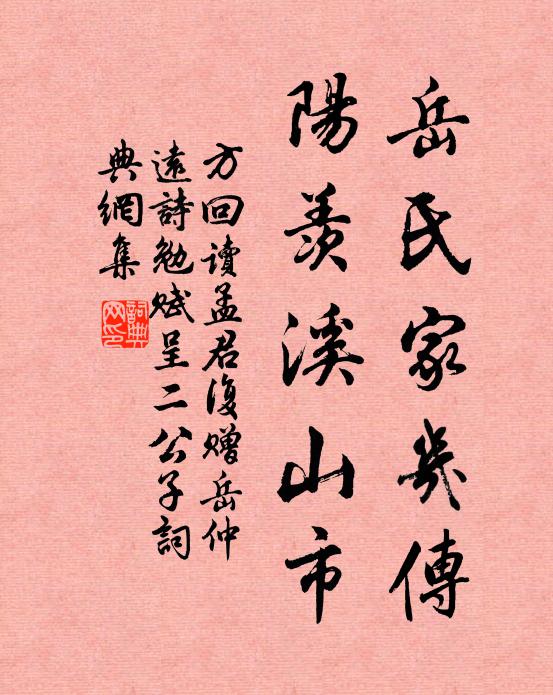 岳氏家幾傳
陽羨溪山市
方回讀孟君復贈岳仲
遠詩勉賦呈二公子詞
典網集
詞典
网印